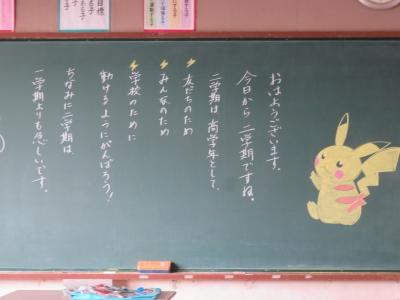 おはようございます。
今日から二学期ですね。
二学期は高学年として、
友だちのため
みんなのため
学校のために
動けるようにがんばろう！
ちなみに二学期は
一学期よりも忙しいです。
目標